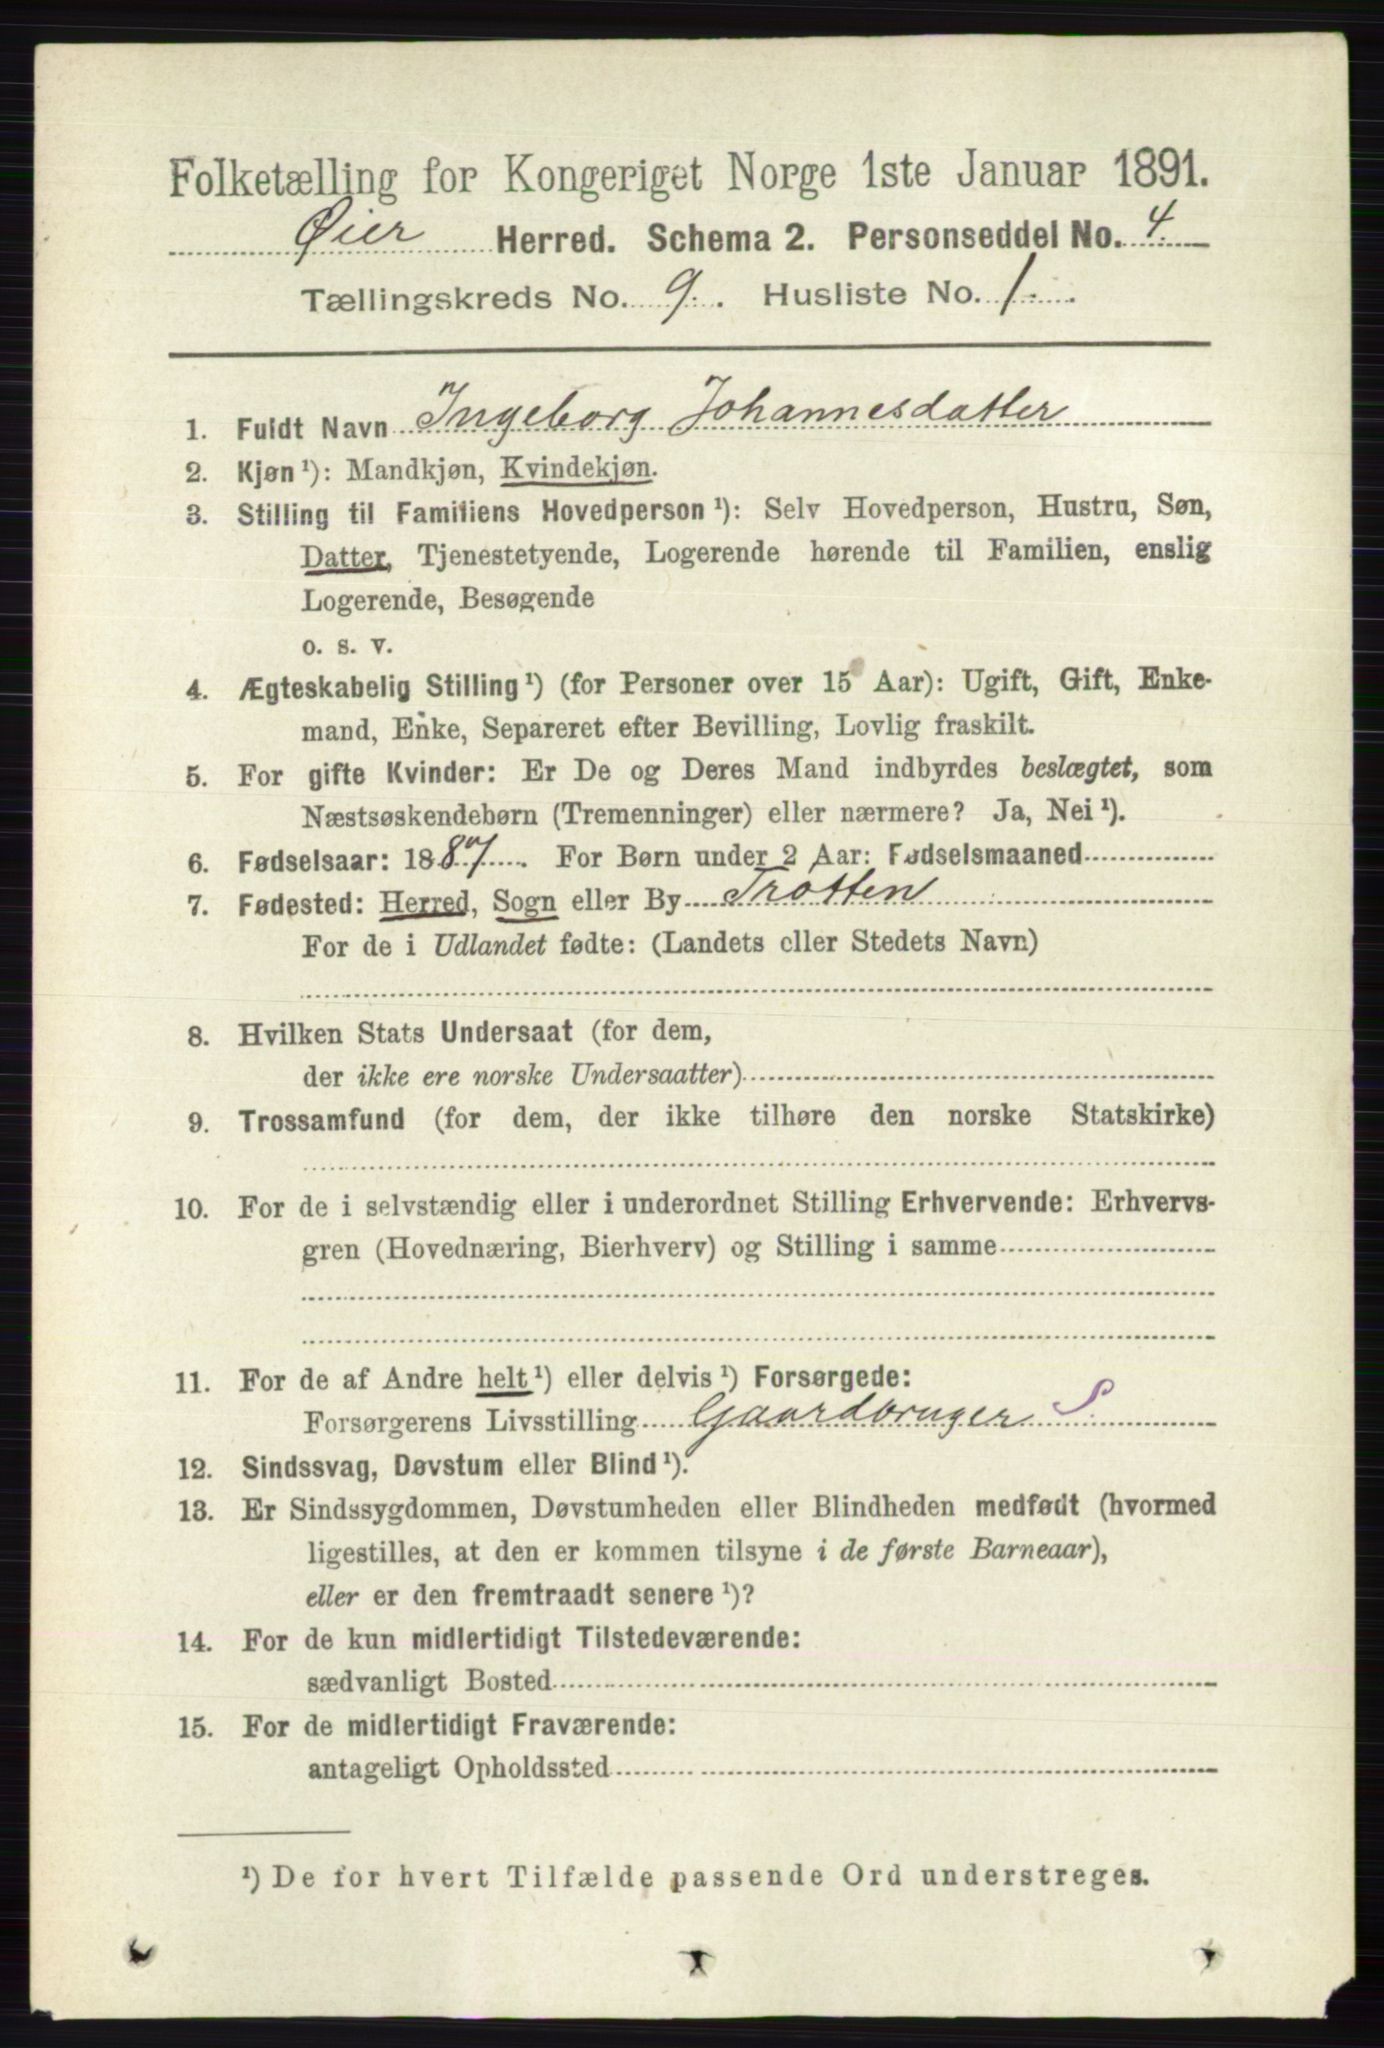 Folketælling for Kongeriget Norge 1ste Januar 1891.
Øier Herred. Schema 2. Personseddel No. 4.
Tællingskreds No. 9. Husliste No. 1.
1. Fuldt Navn Ingeborg Johannesdatter
2. Kjøn ¹): Mandkjøn, Kvindekjøn.
3. Stilling til Familiens Hovedperson ¹): Selv Hovedperson, Hustru, Søn,
Datter, Tjenestetyende, Logerende hørende til Familien, enslig
Logerende, Besøgende
o. s. v.
4. Ægteskabelig Stilling ¹) (for Personer over 15 Aar): Ugift, Gift, Enke-
mand, Enke, Separeret efter Bevilling, Lovlig fraskilt.
5. For gifte Kvinder: Er De og Deres Mand indbyrdes beslægtet, som
Næstsøskendebørn (Tremenninger) eller nærmere? Ja, Nei ¹).
6. Fødselsaar: 1887. For Børn under 2 Aar: Fødselsmaaned
7. Fødested: Herred, Sogn eller By Trotten
For de i Udlandet fødte: (Landets eller Stedets Navn)
8. Hvilken Stats Undersaat (for dem,
der ikke ere norske Undersaatter)
9. Trossamfund (for dem, der ikke tilhøre den norske Statskirke)
10. For de i selvstændig eller i underordnet Stilling Erhvervende: Erhvervs-
gren (Hovednæring, Bierhverv) og Stilling i samme
11. For de af Andre helt ¹) eller delvis ¹) Forsørgede:
Forsørgerens Livsstilling Gaardbruger S
12. Sindssvag, Døvstum eller Blind ¹).
13. Er Sindssygdommen, Døvstumheden eller Blindheden medfødt (hvormed
ligestilles, at den er kommen tilsyne i de første Barneaar),
eller er den fremtraadt senere ¹)?
14. For de kun midlertidigt Tilstedeværende:
sædvanligt Bosted
15. For de midlertidigt Fraværende:
antageligt Opholdssted
¹) De for hvert Tilfælde passende Ord understreges.